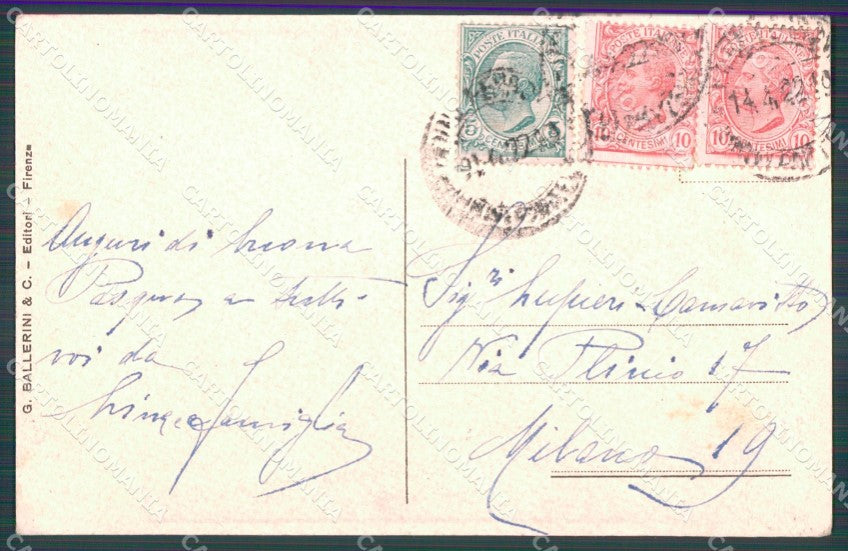 G. BALLERINI & C. - Editori - Firenze
POSTE ITALIANE
5 CENTESIMI
POSTE ITALIANE
10 CENTESIMI 10
POSTE ITALIANE
10 CENTESIMI
14.4.22.19
Auguri di buona
Pasqua a tutti
voi da
famiglia
Sigri
Via Plinio 17
Milano 19
CARTOLINOMANIA